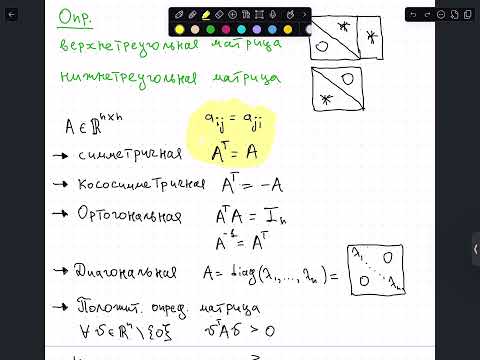 Опр.
верхнетреугольная матрица
* 0 *
нижнетреугольная матрица
0 *
A ∈ ℝⁿˣⁿ aᵢⱼ = aⱼᵢ
→ симметричная Aᵀ = A
→ Кососимметричная Aᵀ = -A
→ Ортогональная AᵀA = Iₙ
A⁻¹ = Aᵀ
→ Диагональная A = diag(λ₁,...,λₙ) = λ₁ 0 0 λₙ
→ Положит. опред. матрица
∀ v ∈ ℝⁿ \ {0} vᵀAv > 0